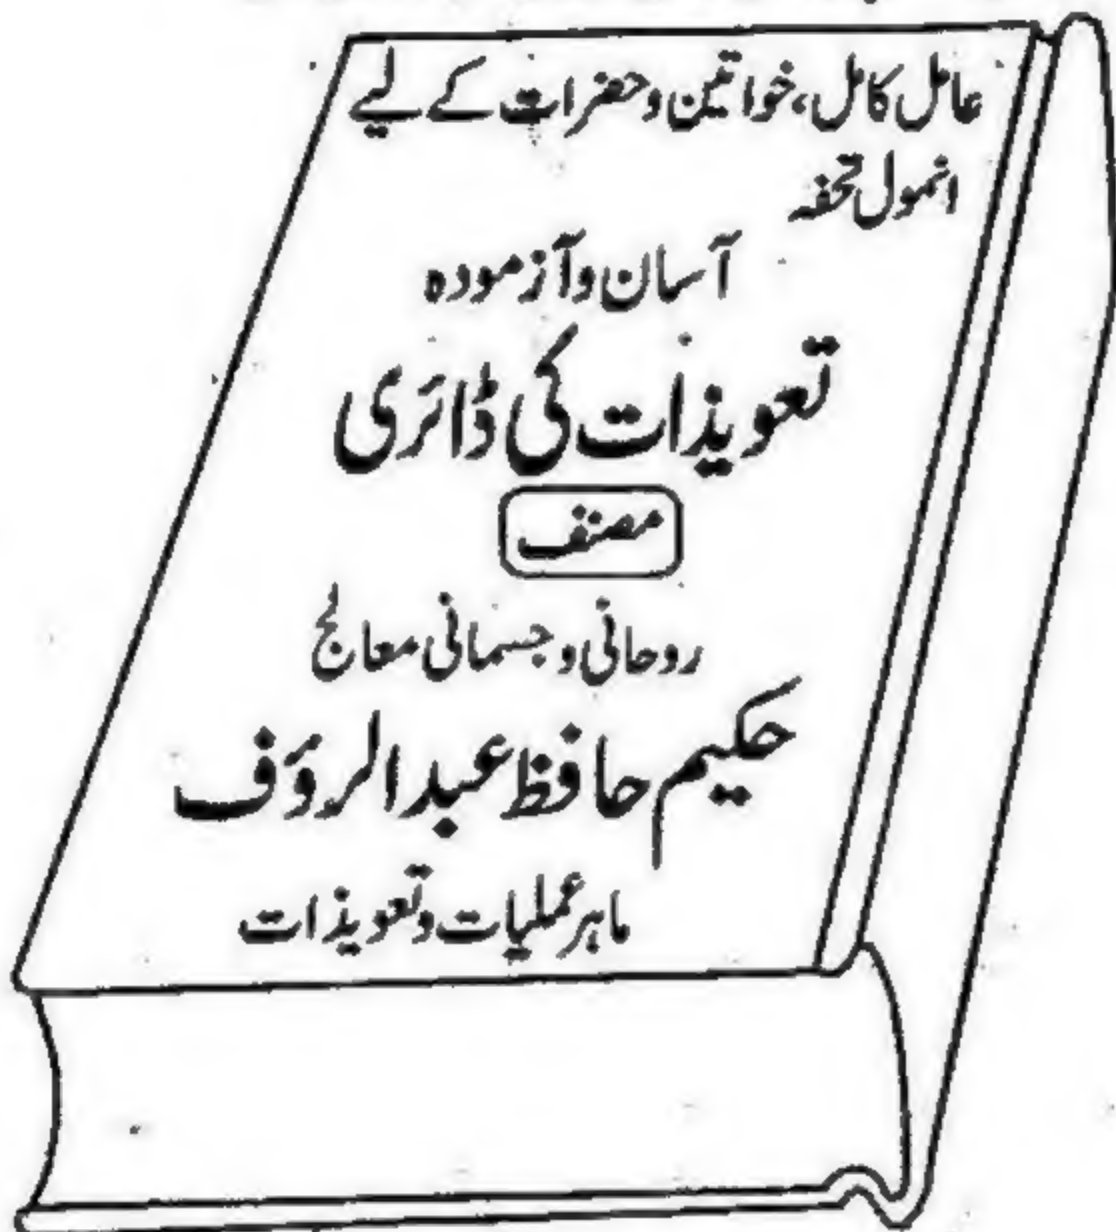 عامل کامل، خواتین و حضرات کے لیے
انمول تحفہ
آسان و آزمودہ
تعویذات کی ڈائری
مصنف
روحانی و جسمانی معالج
حکیم حافظ عبدالرؤف
ماہر عملیات و تعویذات